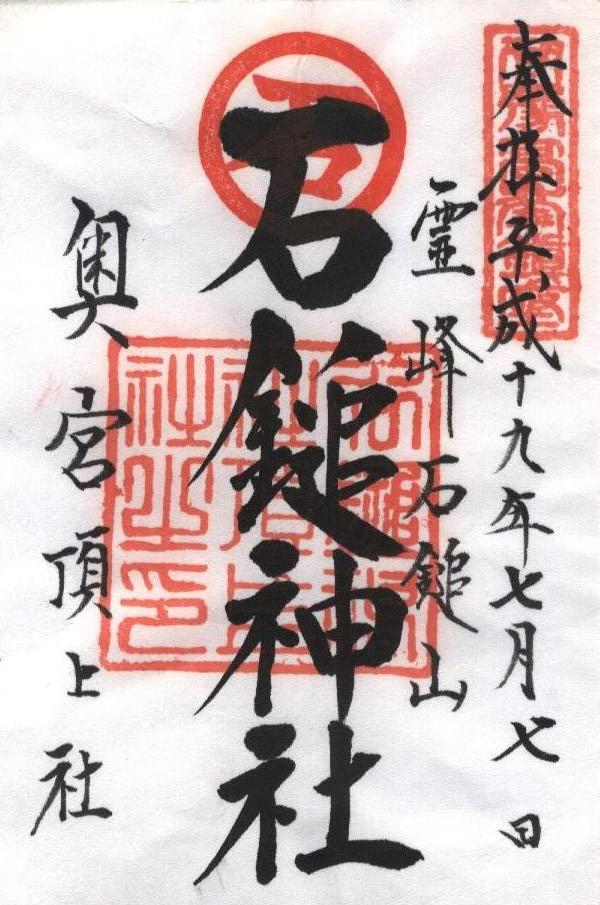 奉拝平成十九年七月七日
霊峰石鎚山
石鎚神社
奥宮頂上社